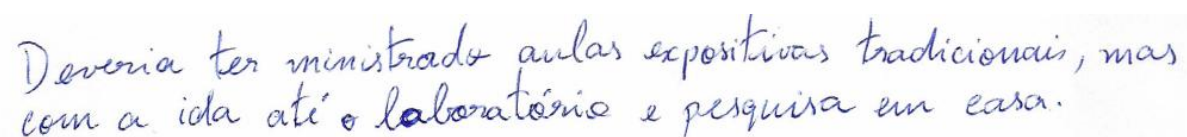 Deveria ter ministrado aulas expositivas tradicionais, mas
com a ida até o laboratório e pesquisa em casa.